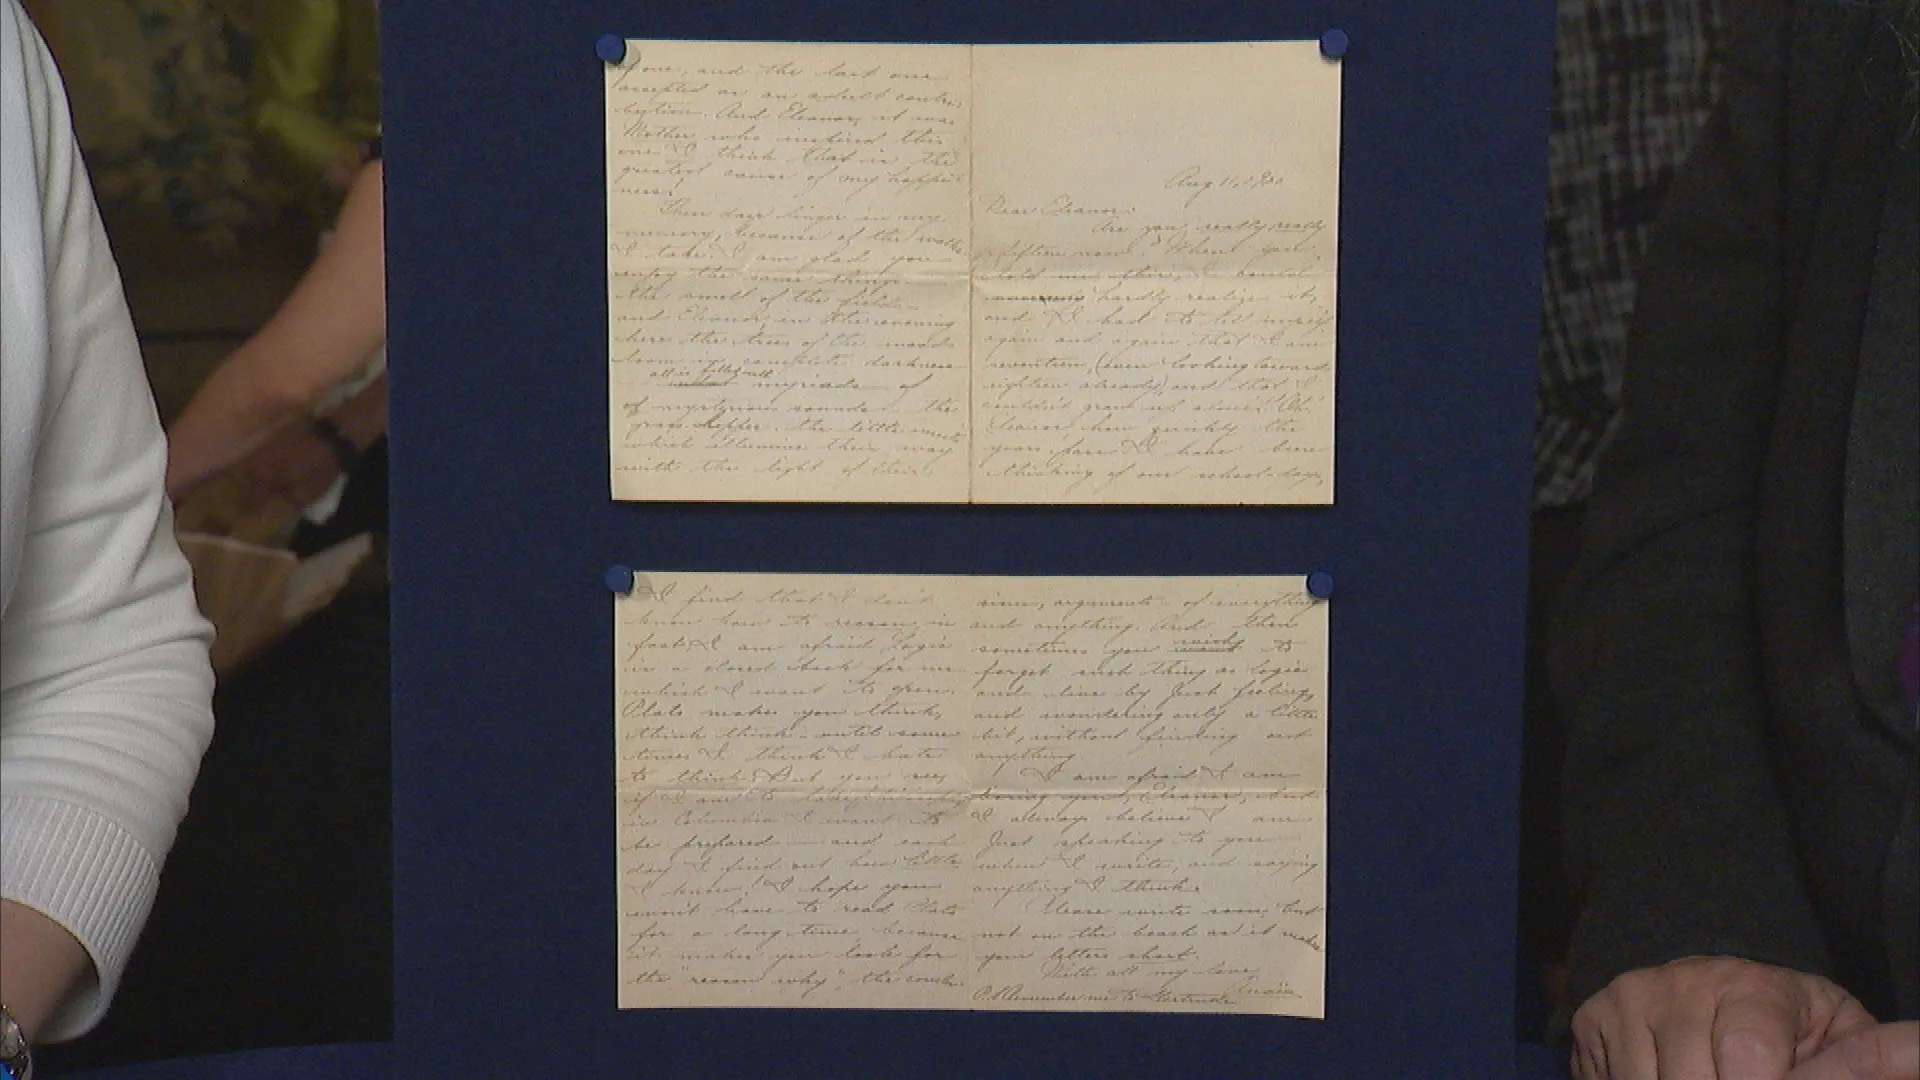 of one, and the last one
accepted as an adult contri-
bution. And Eleanor, it was
Mother who inspired this
one. I think that is the
greatest cause of my happi-
ness!
These days linger in my
memory, because of the walks
I take. I am glad you
enjoy the same things
the smell of the fields
and Eleanor, in the evening
here the trees of the woods
loom in complete darkness
all is filled with
myriads of
of mysterious sounds - the
grass-hopper, the little insects
which illumine their way
with the light of their
Aug 11, 1920
Dear Eleanor:
Are you really really
fifteen now? When you
told me this, I could
hardly realize it,
and I had to tell myself
again and again that I am
seventeen, (even looking toward
eighteen already) and that I
couldn't grow up alone! Oh!
Eleanor, how quickly the
years pass. I have been
thinking of our school-days,
I find that I don't
know how to reason, in
fact, I am afraid Logic
is a closed book for me
which I want to open.
Plato makes you think,
think think - until some
times I think I hate
to think. But you see
if I am to take Philosophy
in Columbia I want to
be prepared - and each
day I find out how little
I know! I hope you
won't have to read Plato
for a long time because
it makes you look for
the "reason why", the
arguments of everything
and anything. And then
sometimes you wish want to
forget such thing as logic
and live by just feeling,
and wondering only a little
bit, without finding out
anything.
I am afraid I am
boring you, Eleanor, but
I always believe I am
Just speaking to you
when I write, and saying
anything I think.
Please write soon, but
not on the beach as it makes
your letters short.
With all my love
Anaïs
P.S Remember me to Gertrude